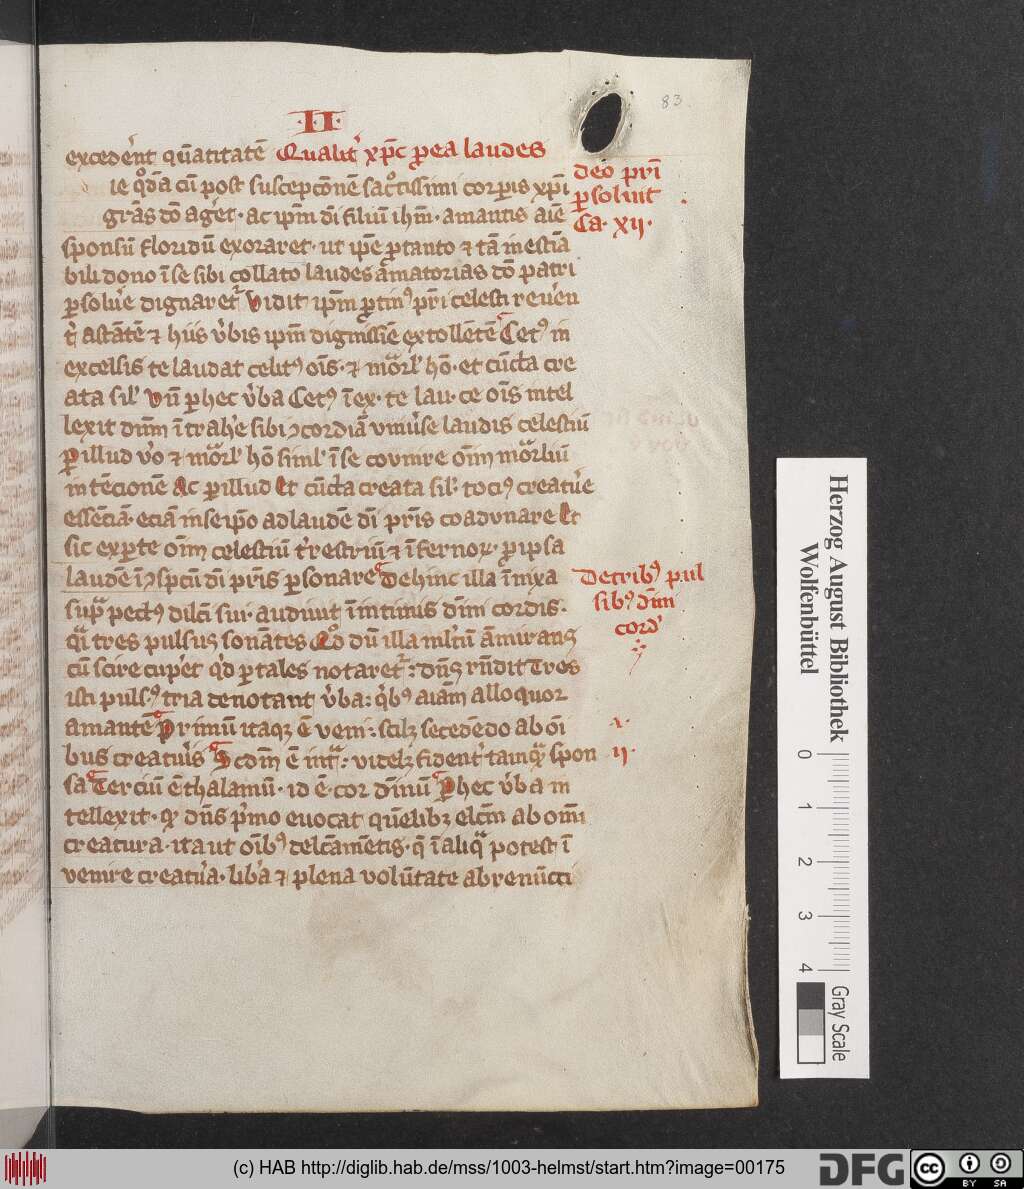 83
·II·
excedēnt quātitatē Qualit᷑ xp̄c ꝑ ea laudes
deo pr̄i
ꝑsoluit
Ca· xij·
ie qͦdā cū post susceptōnē sācͦtissimi corꝑis xp̄i
gr̄as dō ageret· ac ip̄m dī filiū ih̄m· amantis aīe
sponsū floridū exoraret· ut ip̄e ꝑ tanto ⁊ tā inestīa
bili dono ī se sibi collato laudes amatorias dō patri
ꝑsolu᷑e dignaret᷑ vidit ip̄m ꝑtinꝰ pr̄i celesti reu᷑en
t᷑ astātē ⁊ hiis v᷑bis ip̄m digniss̄ie extollētē Cetꝰ in
excelsis te laudat celitꝰ oīs· ⁊ mortal᷑ hō· et cūcta cre
ata sil᷑ vn̄ ꝑ hec v᷑ba Cetꝰ ī ex· te lau· ce oīs intel
lexit dn̄m ītrahe᷑ sibi ꝯcordiā vniu᷑se laudis celestiū
ꝑ illud v᷑o ⁊ mortal᷑ hō siml᷑ ī se co vnire oīm mortaliū
intēcionē Ac ꝑ illud Et cūcta creata sil᷑· tociꝰ creatu᷑e
essēciā· eciā in seip̄o ad laudē dī pr̄is coadvnare Et
sic ex ꝑte oīm celestiū t᷑restriū ⁊ īfernoꝝ· ꝑ ip̄sa
laudē ī ꝯspc̄tū dī pr̄is ꝑsonare dehinc illa īnixa
De tribꝰ pul
supᷓ pectꝰ dilc̄i sui· audiuit ī intimis dn̄i cordis·
sibꝰ dn̄i
qᷓi tres pulsus sonātes Qͦd dū illa ml̄tū amirans
cord᷑
cū scire cup᷑et qͦd ꝑ tales notaret᷑: dn̄s rn̄dit Tres
isti pulsꝰ tria denotant v᷑ba: qͥbꝰ aīam alloquor
amantē Primū itaqꝫ ē veni: scilꝫ secedēdo ab oī
·i·
bus creatu᷑is Scdm̄ ē intᷓ: videlꝫ fident᷑ tamqᷓ spon
·ij·
sa Terciū ē thalamū· id ē· cor diuinū Per hec v᷑ba in
tellexit· qꝫ dn̄s p᷑mo euocat quēlibꝫ elc̄m ab omī
creatura· ita ut oībꝰ delc̄amētis· q̄ ī aliqᷓ potest ī
venire creatu᷑a· lib᷑a ⁊ plena volūtate abrenūcci
Herzog August Bibliothek
Wolfenbüttel
0 1 2 3 4
Gray Scale
(c) HAB http://diglib.hab.de/mss/1003-helmst/start.htm?image=00175
DFG
cc BY SA